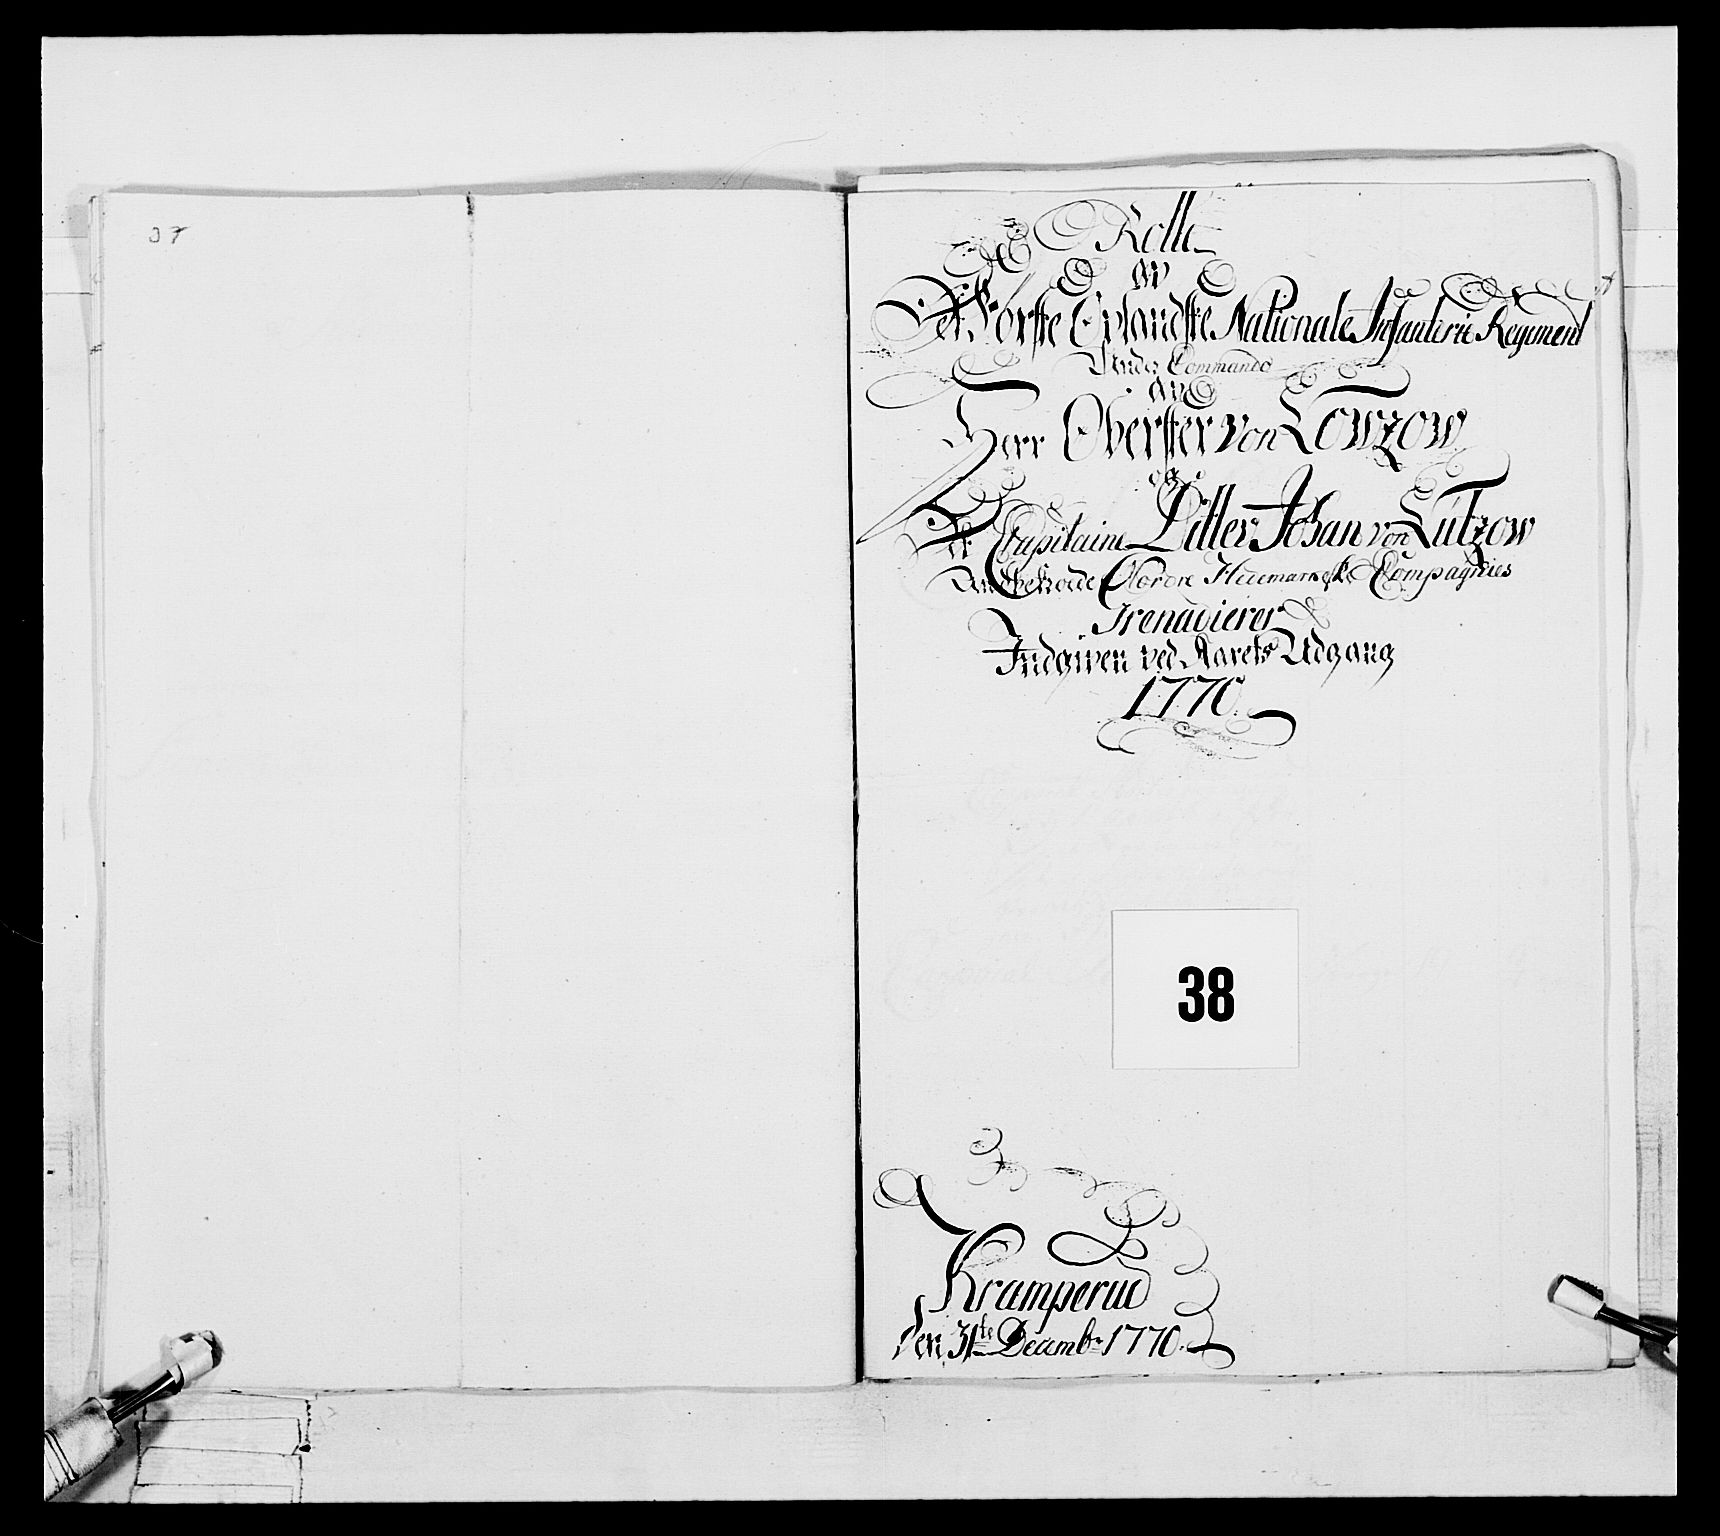 37
Rolle
av
Det Første Oplandske Nationale Infanterie Regiment
Under Commando
av
Herr Oberster von Lowzow
og
Det Capitaine Ditlev Johan von Lutzow
Nordre Compagnies
Grenadierer
Indgiven ved Aarets Udgang
1770.
38
Kramperud
den 31te Decembr 1770.